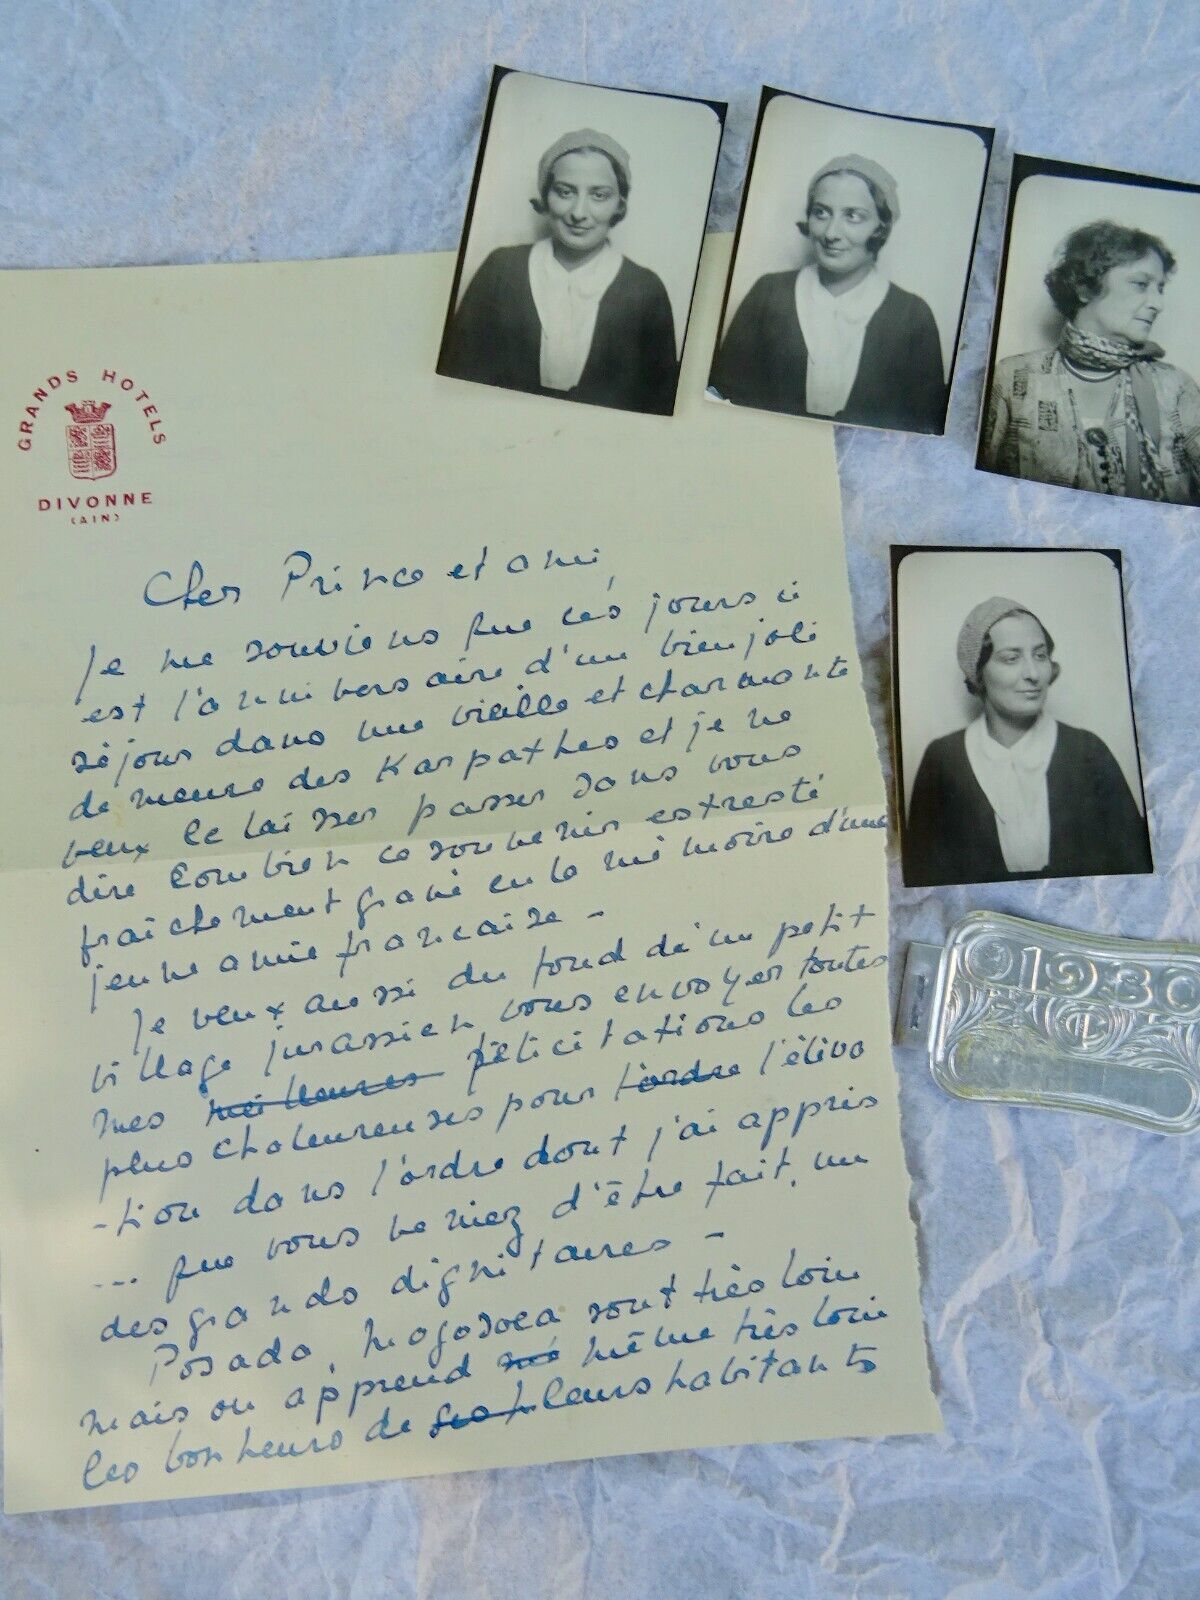 GRANDS HOTELS
DIVONNE
(AIN)
Cher Prince et ami,
Je me souviens que ces jours ci
est l'anniversaire d'un bien joli
séjour dans une vieille et charmante
demeure des Karpathes et je ne
veux le laisser passer sans vous
dire combien ce souvenir est resté
fraichement gravé en la mémoire d'une
jeune amie francaise -
Je veux aussi du fond d'un petit
village jurassien vous envoyer toutes
mes meilleures félicitations les
plus chaleureuses pour l'ordre l'éléva
-tion dans l'ordre dont j'ai appris
... que vous veniez d'être fait, un
des grands dignitaires -
Posada, Mogosoea sont très loin
mais on apprend même très loin
les bonheurs de leurs habitants
1930